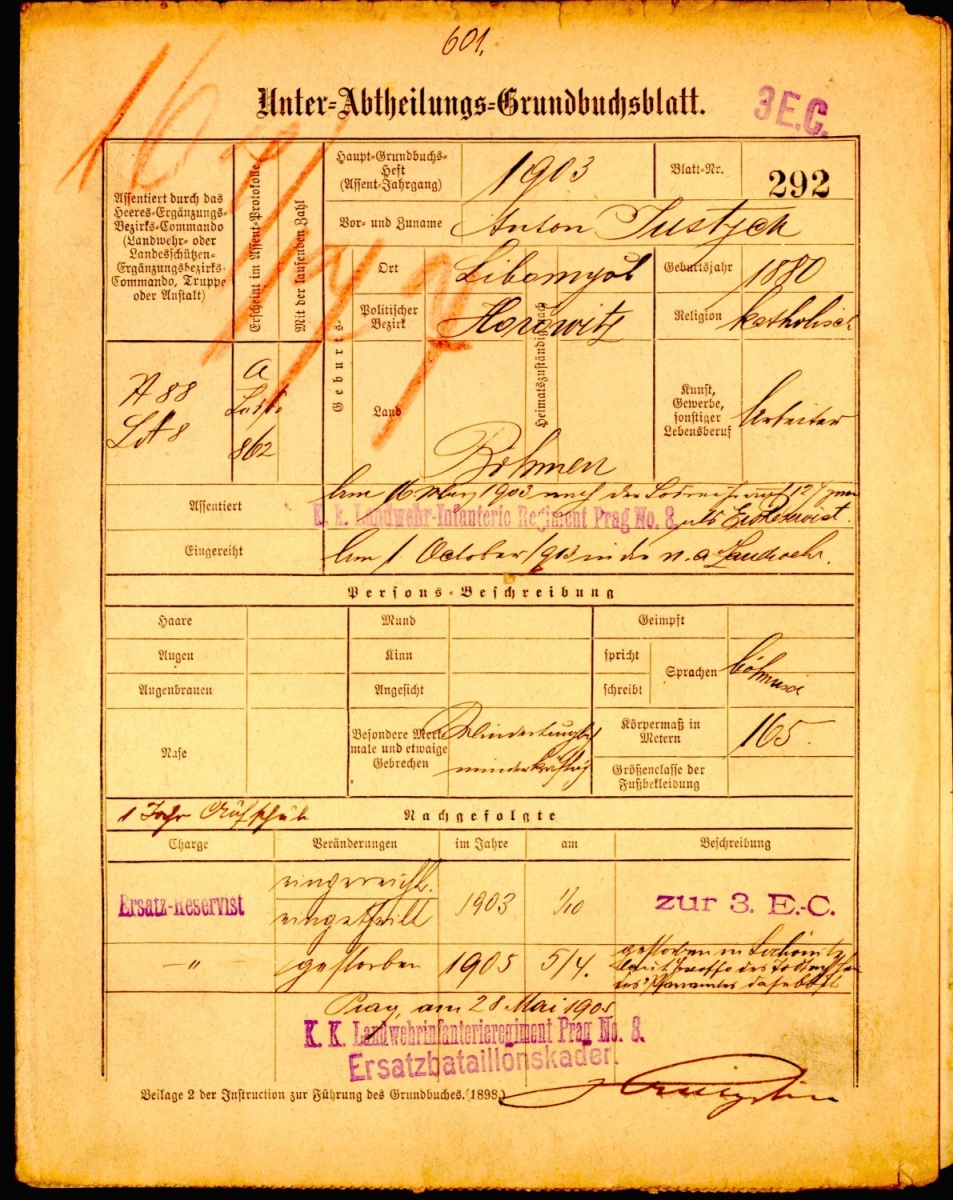 601.
Unter-Abtheilungs-Grundbuchsblatt.
3 E.C.
Assentiert durch das
Heeres-Ergänzungs-
Bezirks-Commando
(Landwehr- oder
Landesschützen-
Ergänzungsbezirks-
Commando, Truppe
oder Anstalt)
Erscheint im Assent-Protokolle
Mit der laufenden Zahl
Haupt-Grundbuchs-
Heft
(Assent-Jahrgang)
1903
Blatt-Nr.
292
Vor- und Zuname
Anton
Geburts-
Ort
Geburtsjahr
1880
Politischer
Bezirk
Horowitz
Heimatszuständig nach
Religion
katholisch
88
8
a
862
Land
Böhmen
Kunst,
Gewerbe,
sonstiger
Lebensberuf
Arbeiter
Assentiert
Am 16 März 1903 nach der
K. k. Landwehr-Infanterie Regiment Prag No. 8.
als
Eingereiht
Am 1 October 1903 in die n. a. Landwehr.
Persons-Beschreibung
Haare
Mund
Geimpft
Augen
Kinn
spricht
Sprachen
böhmisch
Augenbrauen
Angesicht
schreibt
Nase
Besondere Merk-
male und etwaige
Gebrechen
Mindertauglich
minderkräftig
Körpermaß in
Metern
165.
Größenclasse der
Fußbekleidung
1 Jahr
Nachgefolgte
Charge
Veränderungen
im Jahre
am
Beschreibung
Ersatz-Reservist
eingereiht.
eingetheilt
1903
1/10
zur 3. E.-C.
– " –
gestorben
1905
5/4.
gestorben in
laut des
des Pfarramtes daselbst
Prag, am 28 Mai 1905
K. K. Landwehrinfanterieregiment Prag No. 8.
Ersatzbataillonskader.
Beilage 2 der Instruction zur Führung des Grundbuches. (1898.)